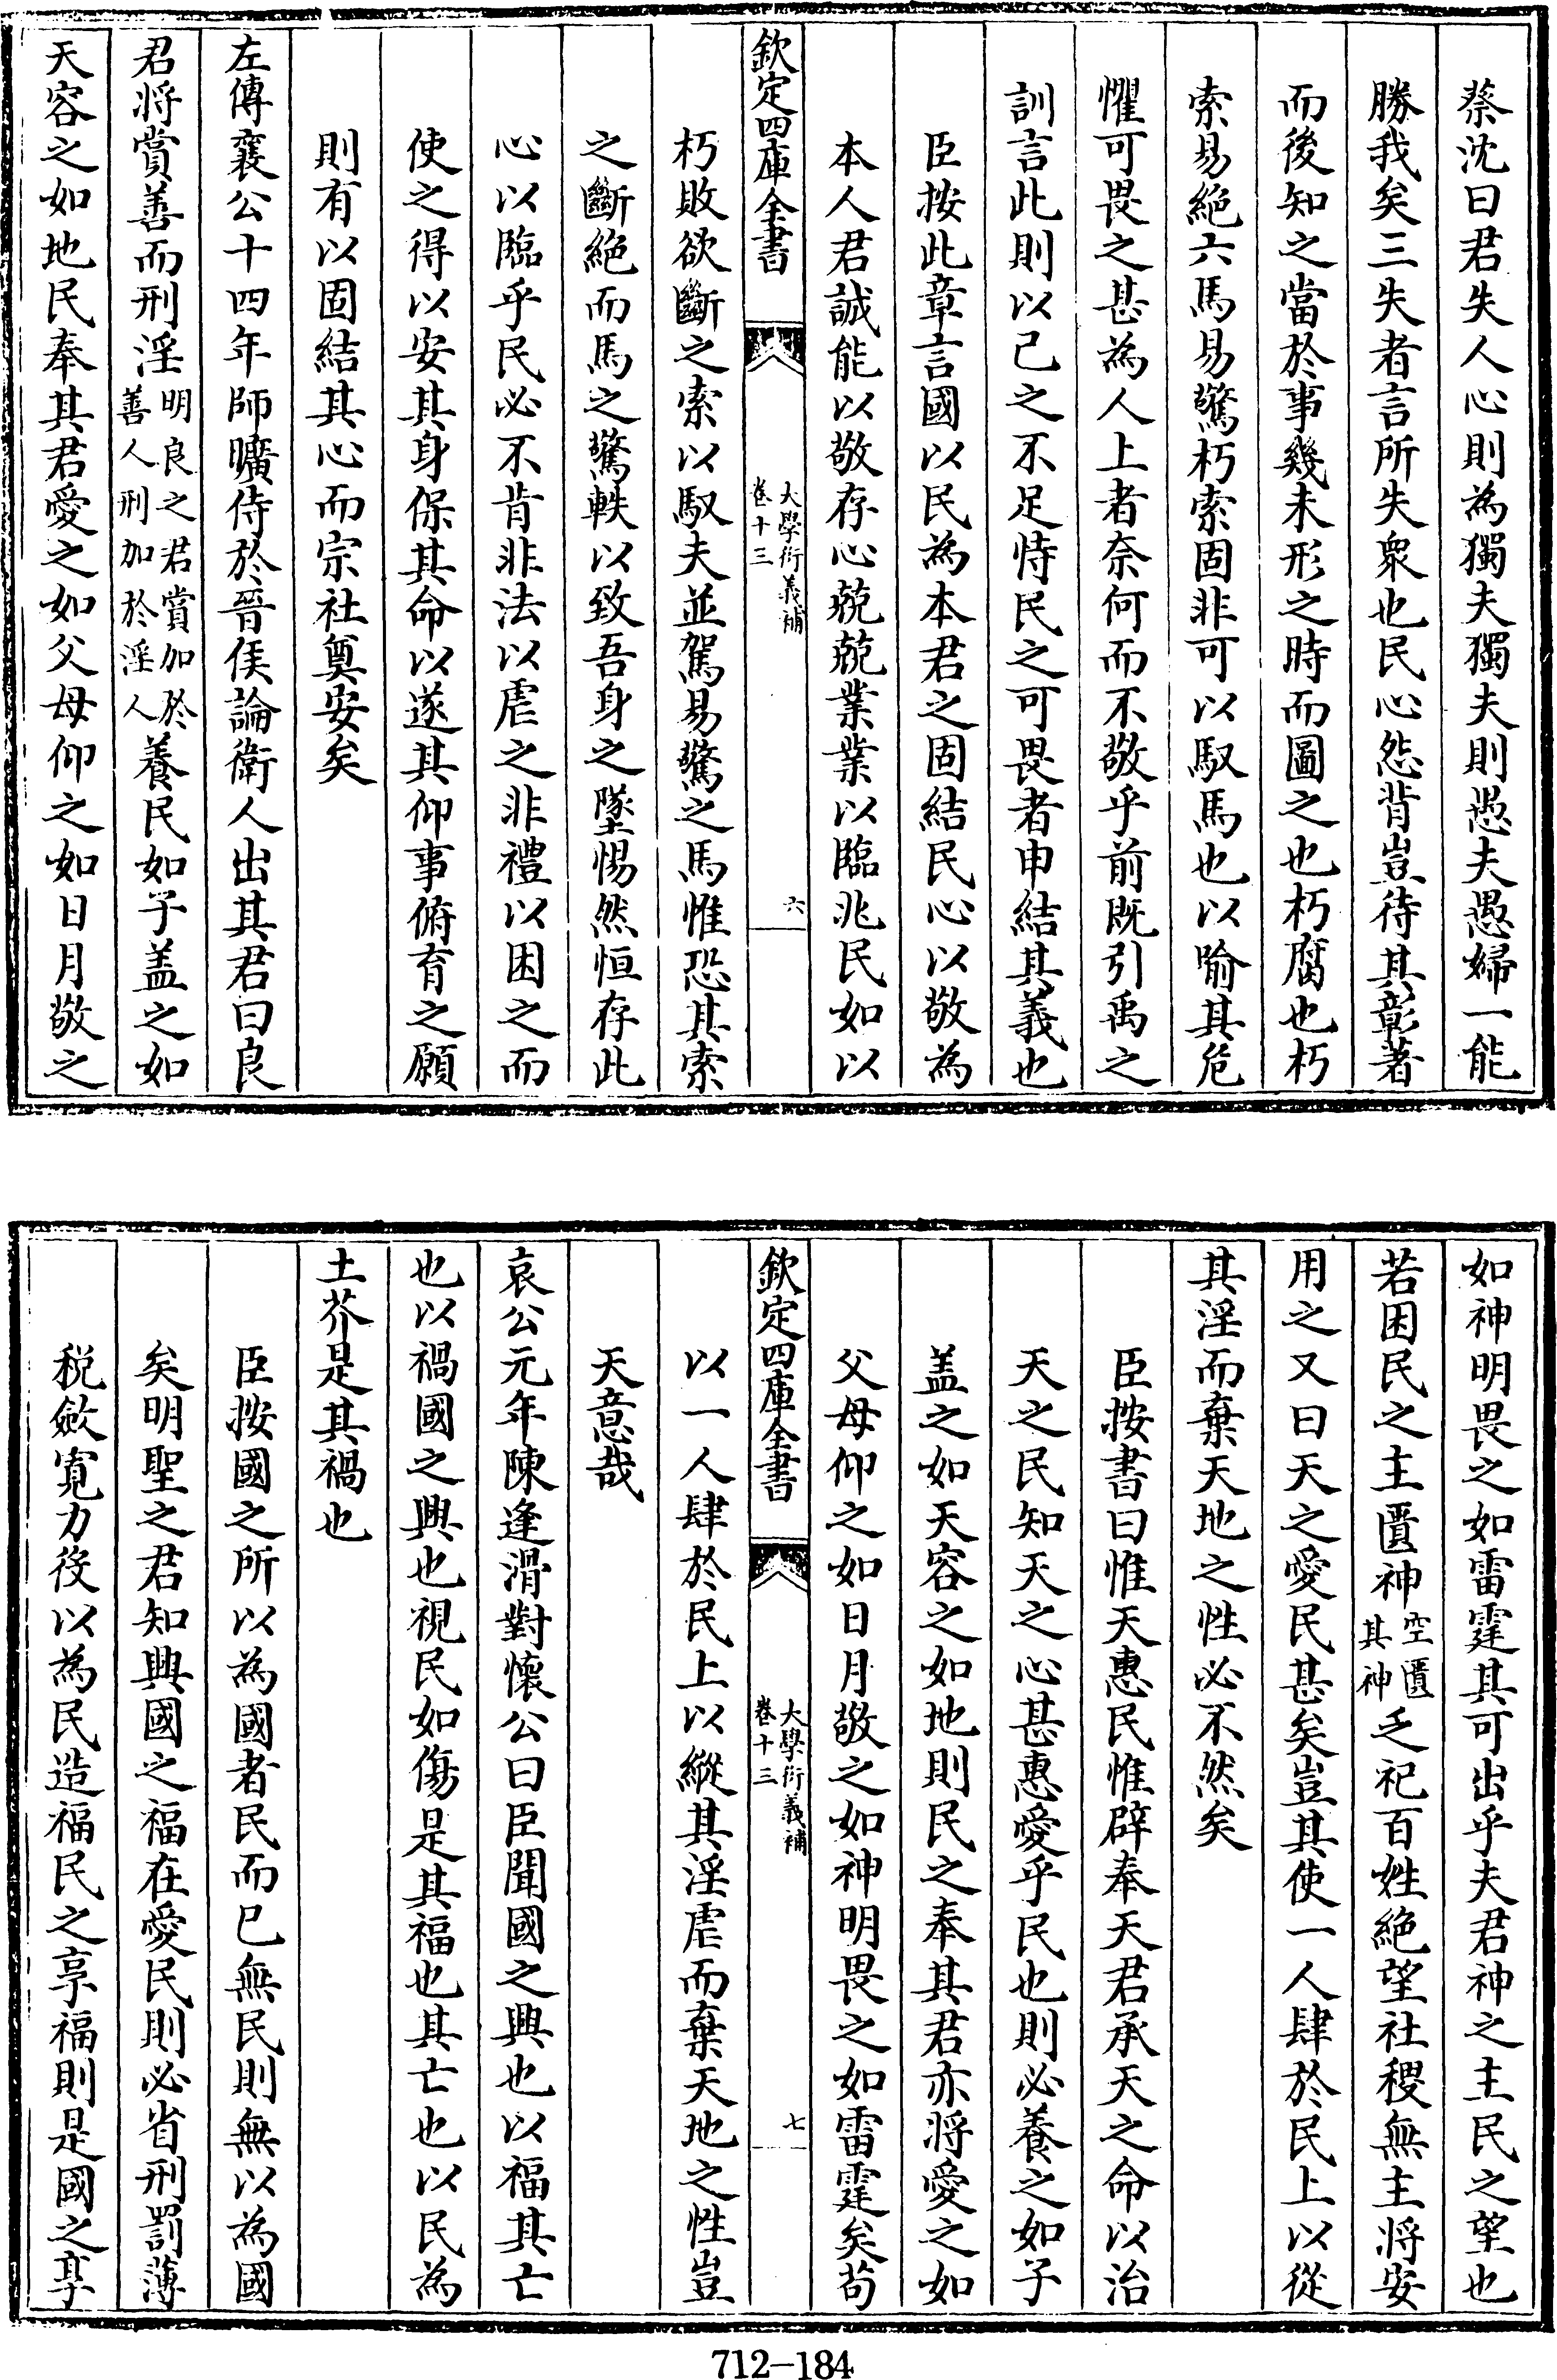 蔡沈曰君失人心則為獨夫獨夫則愚夫愚婦一能
勝我矣三失者言所失衆也民心怨背豈待其彰著
而後知之當於事幾未形之時而圖之也朽腐也朽
索易絕六馬易驚朽索固非可以馭馬也以喻其危
懼可畏之甚為人上者奈何而不敬乎前既引禹之
訓言此則以已之不足恃民之可畏者申結其義也
臣按此章言國以民為本君之固結民心以敬為
本人君誠能以敬存心兢兢業業以臨兆民如以
欽定四庫全書
大學衍義補
卷十三
六
朽敗欲斷之索以馭夫並駕易驚之馬惟恐其索
之斷絕而馬之驚軼以致吾身之墜惕然恒存此
心以臨乎民必不肯非法以虐之非禮以困之而
使之得以安其身保其命以遂其仰事俯育之願
則有以固結其心而宗社奠安矣
左傳襄公十四年師曠侍於晉侯論衛人出其君曰良
君將賞善而刑淫明良之君賞加於善人刑加於淫人養民如子盖之如
天容之如地民奉其君愛之如父母仰之如日月敬之
如神明畏之如雷霆其可出乎夫君神之主民之望也
若困民之主匱神空匱其神乏祀百姓絕望社稷無主將安
用之又曰天之愛民甚矣豈其使一人肆於民上以從
其淫而棄天地之性必不然矣
臣按書曰惟天惠民惟辟奉天君承天之命以治
天之民知天之心甚惠愛乎民也則必養之如子
盖之如天容之如地則民之奉其君亦將愛之如
父母仰之如日月敬之如神明畏之如雷霆矣苟
欽定四庫全書
大學衍義補
卷十三
七
以一人肆於民上以縱其淫虐而棄天地之性豈
天意哉
哀公元年陳逢滑對懷公曰臣聞國之興也以福其亡
也以禍國之興也視民如傷是其福也其亡也以民為
土芥是其禍也
臣按國之所以為國者民而已無民則無以為國
矣明聖之君知興國之福在愛民則必省刑罰薄
稅斂寬力役以為民造福民之享福則是國之享
712-184